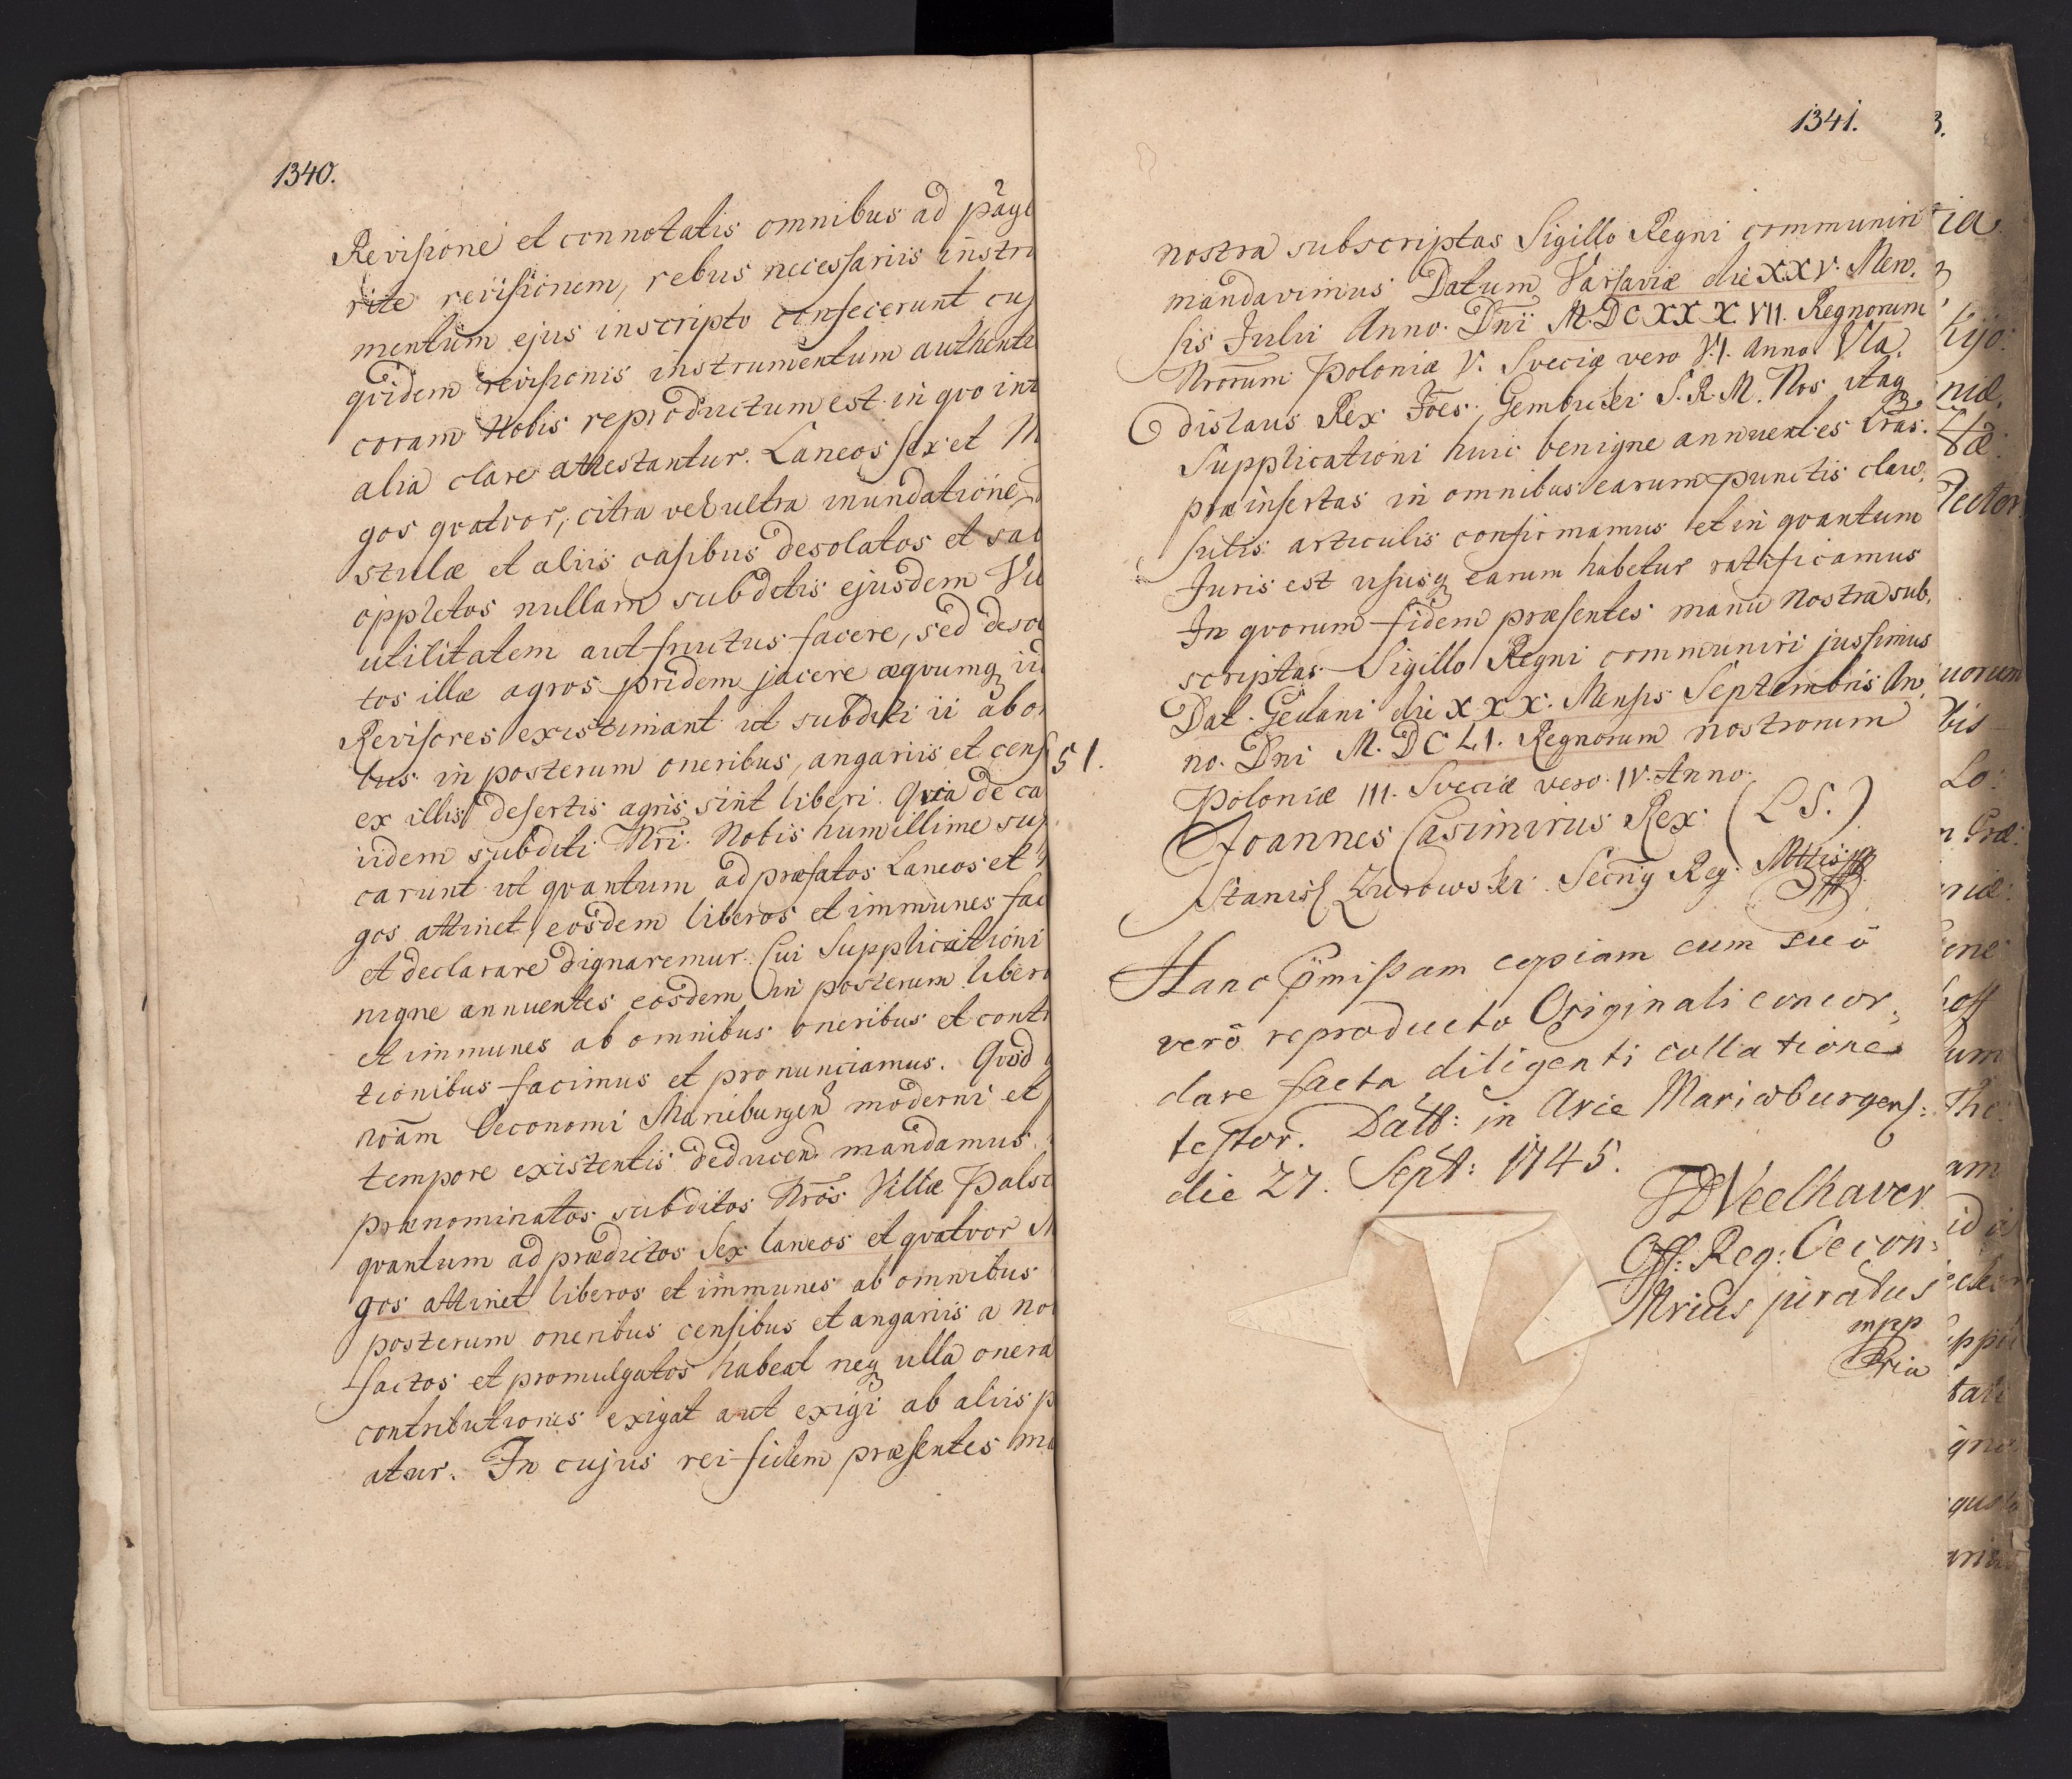 1340.
Revisione et connotatis omnibus ad page
rite revisionem, rebus necessariis instru
mentum ejus inscripto confecerunt cuj
qvidem revisionis instrumentum authenti
coram Nobis reproductum est in qvo int
alia clare attestantur. Laneos sex et M
gos qvatvor, citra vel ultra inundatione
stulæ et aliis casibus desolatos et sab
oppletos nullam subditis ejusdem Vil
utilitatem aut fructus facere, sed deso
tos illæ agros pridem jacere æqvumq iid
Revisores existimant ut subditi ii ab o
bus in posterum oneribus, angariis et cens
ex illis desertis agris sint liberi. Qvia de ca
iidem subditi Nri. Nobis humillime sup
carunt ut qvantum ad præfatos Laneos et
gos attinet, eosdem liberos et immunes fac
et declarare dignaremur. Cui Supplicationi
nigne annuentes eosdem in posterum libero
et immunes ab omnibus oneribus et contr
tionibus facimus et pronunciamus. Qvod
noãm Oeconomi Marieburgen moderni et
tempore existentis deducen mandamus
prænominatos subditos Nrõs Villæ Palsc
qvantum ad prædictos Sex laneos et qvatvor M
gos attinet liberos et immunes ab omnibus
posterum oneribus censibus et angariis a no
factos et promulgatos habeat neq ulla onera
contributiones exigat aut exigi ab aliis p
atur. In cujus rei fidem præsentes ma
1341.
nostra subscriptas Sigillo Regni communiri
mandavimus Datum Varsaviæ die XXV. Men,
sis Julii Anno. Dni M.DCXXXVII. Regnorum
Nrorum Poloniæ V. Sveciæ vero V.I. Anno. Vla,
dislaus Rex Joes. Gembicki S. R. M. Nos itaq
Supplicationi huic benigne annuentes Lrãs.
præinsertas in omnibus earum punctis clau,
sulis articulis confirmamus et in qvantum
Juris est ususq earum habetur ratificamus
In qvorum fidem præsentes manu nostra sub,
scriptas Sigillo Regni communiri jussimus
Dat. Gedani die XXX. Mensis Septembris An,
no. Dni M. DCLI. Regnorum nostrorum
51.
Poloniæ III. Sveciæ vero. IV. Anno.
Joannes Casimirus Rex (L S.)
Stanisl Zurowski Secrig Reg. Mttis
Hanc pmissam copiam cum suo
vero reproducto Originali concor,
dare facta diligenti collatione
testor. Datt: in Arce Mariæburgens:
die 27. Sept: 1745.
Weelhaver
Off: Reg: Oecon:
Nrius juratus
mpp
ria